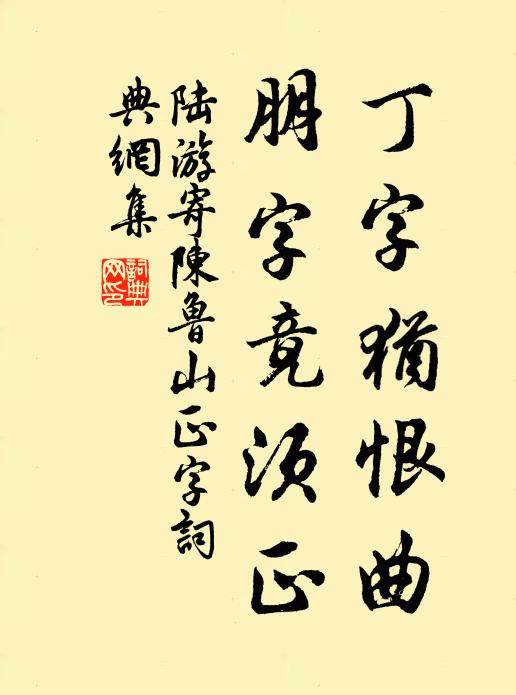 丁字猶恨曲
朋字竟須正
陸游寄陳魯山正字詞
典網集
詞典网印